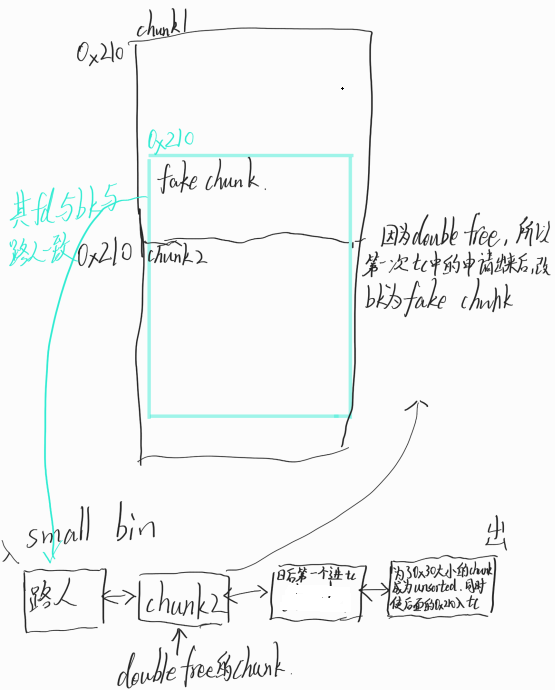 chunk1
0x210
0x210
fake chunk.
其fd与bk与
路人一致
0x210
chunk2
因为double free，所以
第一次tc中的申请出来后，改
bk为fake chunk
small bin
入
出
路人
chunk2
日后第一个进tc
为了0x30大小的chunk
成为unsorted，同时
使后面的0x210入tc
double free的chunk.